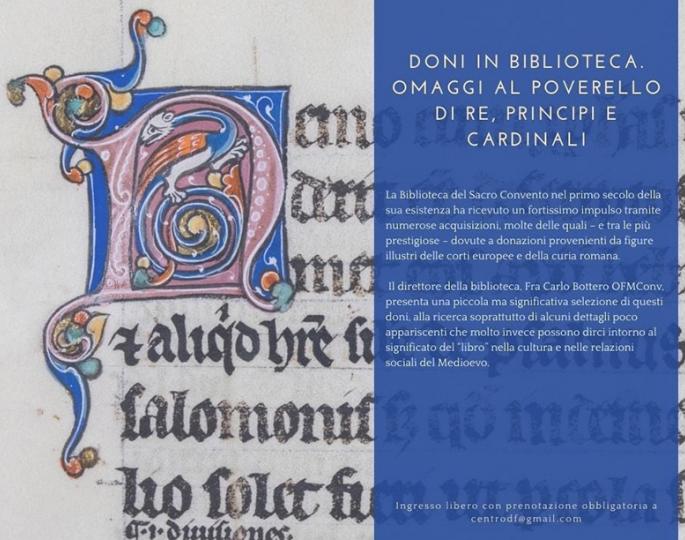 DONI IN BIBLIOTECA.
OMAGGI AL POVERELLO
DI RE, PRINCIPI E
CARDINALI
La Biblioteca del Sacro Convento nel primo secolo della
sua esistenza ha ricevuto un fortissimo impulso tramite
numerose acquisizioni, molte delle quali – e tra le più
prestigiose – dovute a donazioni provenienti da figure
illustri delle corti europee e della curia romana.
Il direttore della biblioteca, Fra Carlo Bottero OFMConv,
presenta una piccola ma significativa selezione di questi
doni, alla ricerca soprattutto di alcuni dettagli poco
appariscenti che molto invece possono dirci intorno al
significato del "libro" nella cultura e nelle relazioni
sociali del Medioevo.
Ingresso libero con prenotazione obbligatoria a
centrodf@gmail.com
salomonis
lio solet